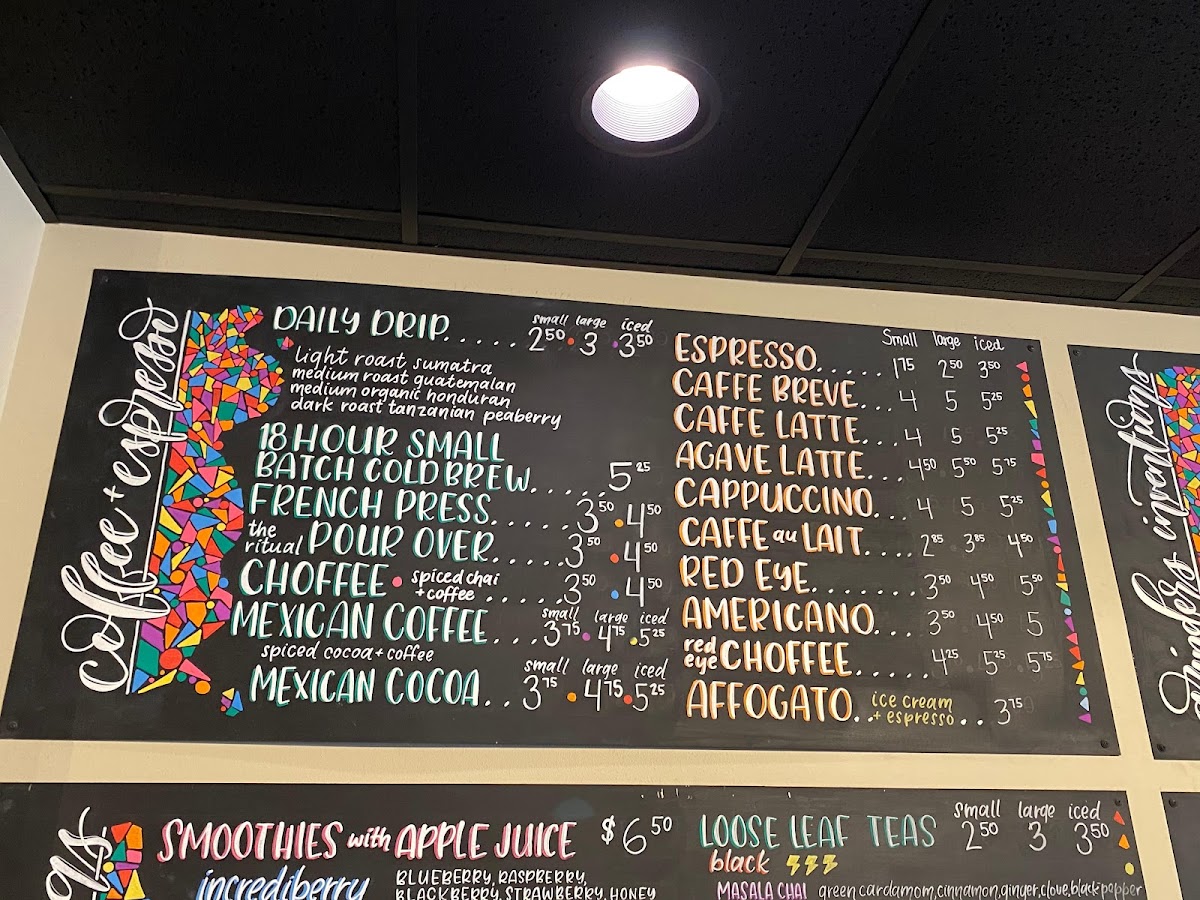 coffee + espresso
small large iced
DAILY DRIP..... 2.50 • 3 • 3.50
light roast sumatra
medium roast guatemalan
medium organic honduran
dark roast tanzanian peaberry
18 HOUR SMALL
BATCH COLD BREW..... 5.25
FRENCH PRESS...... 3.50 • 4.50
the ritual POUR OVER..... 3.50 • 4.50
CHOFFEE • spiced chai + coffee ...... 3.50 • 4.50
small large iced
MEXICAN COFFEE... 3.75 • 4.75 • 5.25
spiced cocoa + coffee
small large iced
MEXICAN COCOA.. 3.75 • 4.75 • 5.25
Small large iced
ESPRESSO..... 1.75 2.50 3.50
CAFFE BREVE... 4 5 5.25
CAFFE LATTE... 4 5 5.25
AGAVE LATTE... 4.50 5.50 5.75
CAPPUCCINO... 4 5 5.25
CAFFE au LAIT.... 2.85 3.85 4.50
RED EYE....... 3.50 4.50 5.50
AMERICANO... 3.50 4.50 5
red eye CHOFFEE..... 4.25 5.25 5.75
AFFOGATO.. ice cream + espresso .. 3.75
inventions
SMOOTHIES with APPLE JUICE $6.50
incrediberry BLUEBERRY, RASPBERRY,
BLACKBERRY, STRAWBERRY, HONEY
small large iced
LOOSE LEAF TEAS 2.50 3 3.50
black
MASALA CHAI green cardamom, cinnamon, ginger, clove, black pepper